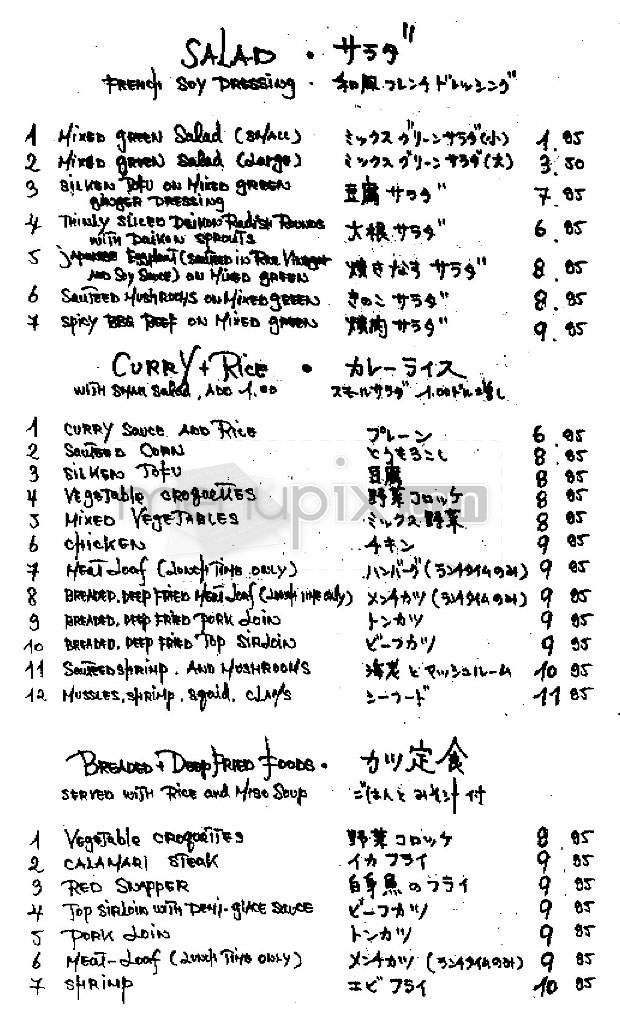 SALAD • サラダ
FRENCH SOY DRESSING • 和風フレンチドレッシング
1 MIXED GREEN SALAD (SMALL) ミックスグリーンサラダ(小) 1.95
2 MIXED GREEN SALAD (LARGE) ミックスグリーンサラダ(大) 3.50
3 SILKEN TOFU ON MIXED GREEN 豆腐サラダ 7.95
GINGER DRESSING
4 THINLY SLICED DAIKON RADISH ROUNDS 大根サラダ 6.95
WITH DAIKON SPROUTS
5 JAPANESE EGGPLANT (SAUTEED IN RICE VINEGAR 焼きなすサラダ 8.95
AND SOY SAUCE) ON MIXED GREEN
6 SAUTEED MUSHROOMS ON MIXED GREEN きのこサラダ 8.95
7 SPICY BBQ BEEF ON MIXED GREEN 焼肉サラダ 9.95
CURRY + RICE • カレーライス
WITH SMALL SALAD, ADD 1.00 スモールサラダ 1.00ドル増し
menupix.com
1 CURRY SAUCE AND RICE プレーン 6.95
2 SAUTEED CORN とうもろこし 8.95
3 SILKEN TOFU 豆腐 8.95
4 VEGETABLE CROQUETTES 野菜コロッケ 8.95
5 MIXED VEGETABLES ミックス野菜 8.95
6 CHICKEN チキン 9.95
7 MEAT LOAF (LUNCH TIME ONLY) ハンバーグ(ランチタイムのみ) 9.95
8 BREADED, DEEP FRIED MEAT LOAF (LUNCH TIME ONLY) メンチカツ(ランチタイムのみ) 9.95
9 BREADED, DEEP FRIED PORK LOIN トンカツ 9.95
10 BREADED, DEEP FRIED TOP SIRLOIN ビーフカツ 9.95
11 SAUTEED SHRIMP AND MUSHROOMS 海老とマッシュルーム 10.95
12 MUSSLES, SHRIMP, SQUID, CLAMS シーフード 11.95
BREADED + DEEP FRIED FOODS • カツ定食
SERVED WITH RICE AND MISO SOUP ごはんとみそ汁付
1 VEGETABLE CROQUETTES 野菜コロッケ 8.95
2 CALAMARI STEAK イカフライ 9.95
3 RED SNAPPER 白身魚のフライ 9.95
4 TOP SIRLOIN WITH DEMI-GLACE SAUCE ビーフカツ 9.95
5 PORK LOIN トンカツ 9.95
6 MEAT-LOAF (LUNCH TIME ONLY) メンチカツ(ランチタイムのみ) 9.95
7 SHRIMP エビフライ 10.95